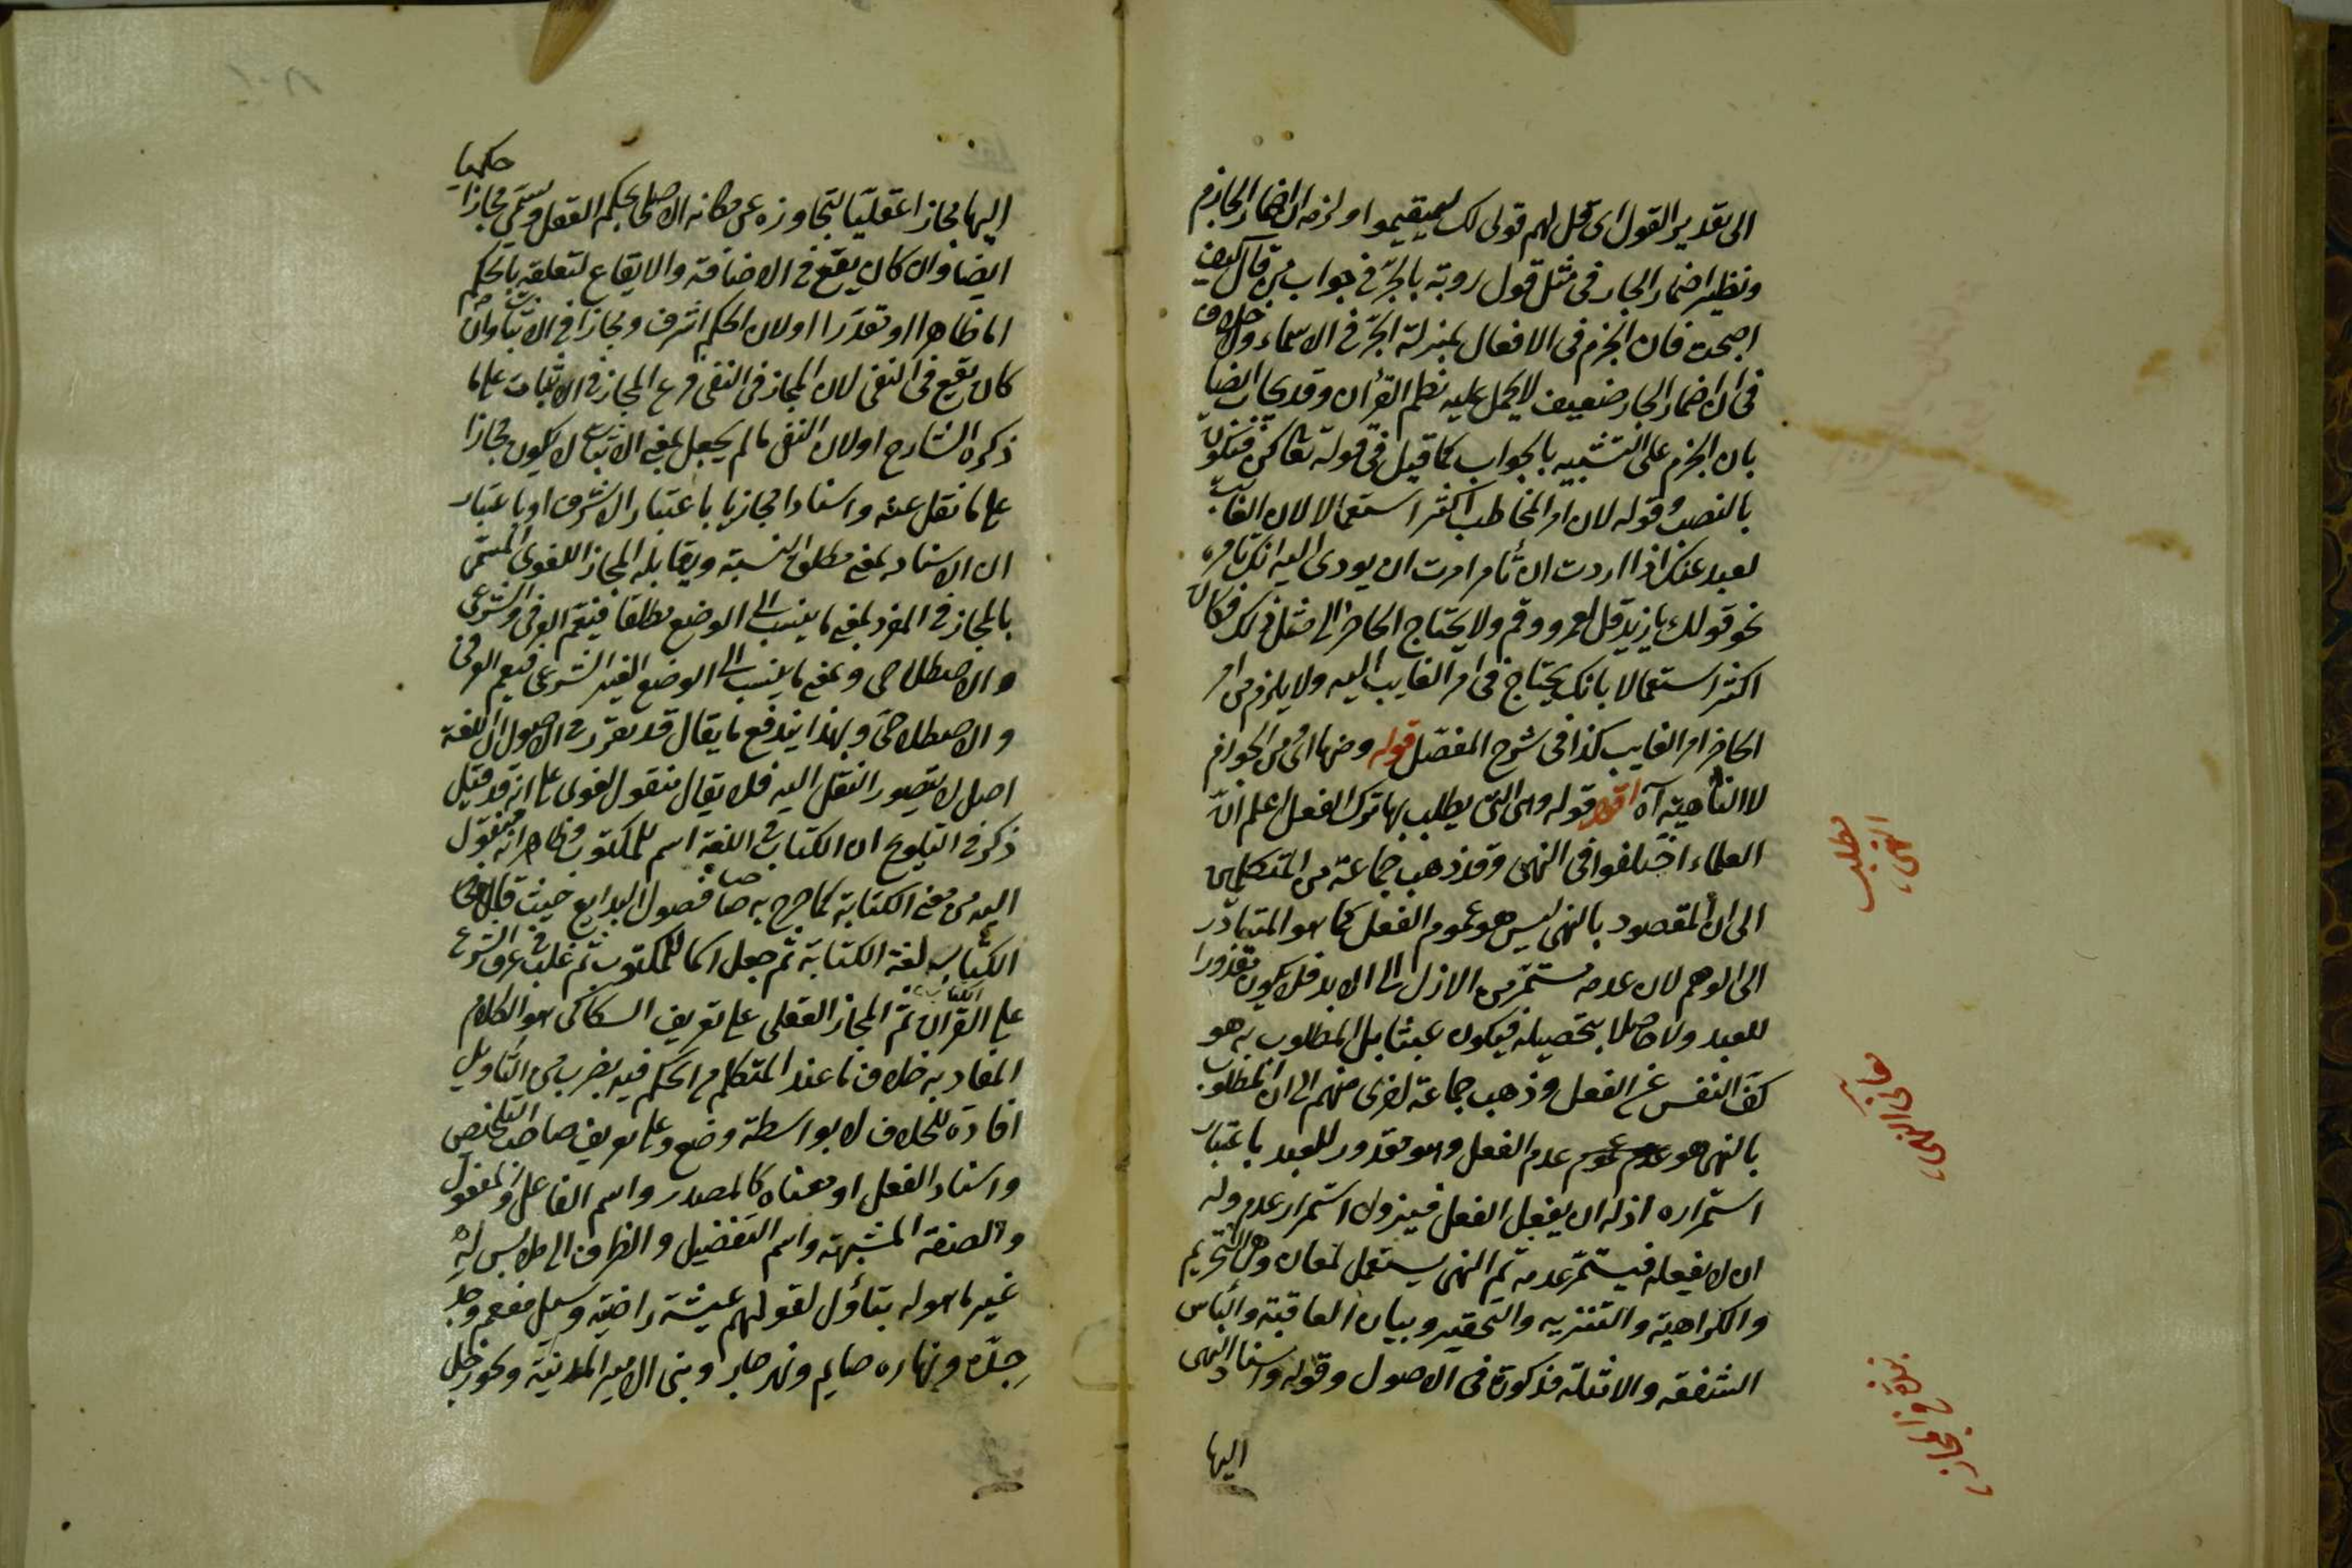 الى تقدير القول اى قل لهم قولى لك ليقيموا ولزمه اضمار الجازم
ونظير اضمار الجار فى مثل قول روبة بالجرّ فى جواب من قال كيف
اصبحت فان الجزم فى الافعال بمنزلة الجرّ فى الاسماء ولا خلاف
فى ان اضمار الجار ضعيف لا يحمل عليه نظم القرأن وقد يجاب ايضا
بان الجزم على التشبيه بالجواب كما قيل فى قوله تعا كن فيكون
بالنصب وقوله لان امر المخاطب اكثر استعمالا لان الغايب
بعيد عنك اذا اردت ان تأمر امرت ان يودى اليه انك تامره
نحو قولك يا زيد قل لعمرو وقم ولا يحتاج الحاضر الى مثل ذلك فكان
اكثر استعمالا بانك يحتاج فى امر الغايب اليه ولا يلزم من امر
الحاضر امر الغايب كذا فى شرح المفصّل قوله ومنها اى من الجوازم
لا الناهية آه اقول قوله وهى التى يطلب بها ترك الفعل اعلم انّ
العلماء اختلفوا فى النهى وقد ذهب جماعة من المتكلمين
الى ان المقصود بالنهى ليس هو عموم الفعل كما هو المتبادر
الى الوهم لان عدمه مستمّر من الازل الى الابد فلا يكون مقدورا
للعبد ولا حاصلا بتحصيله فيكون عبثا بل المطلوب به هو
كفّ النفس عن الفعل وذهب جماعة اخرى منهم الى ان المطلوب
بالنهى هو عدم عموم عدم الفعل وهو مقدور للعبد باعتبار
استمراره اذ له ان يفعل الفعل فيزول استمرار عدمه وله
ان لا يفعله فيستمّر عدمه ثم النهى يستعمل لمعان وهى التحريم
والكراهية والتنزيه والتحقير وبيان العاقبة واليأس
الشفقه والامثلة مذكورة فى الاصول وقوله واسناد النهى
اليها
مطلب
النهى
حكميا
اليها مجازا عقليّا لتجاوزه عن مكانه الاصلى بحكم العقل ويسمّى مجازا
ايضا وان كان يقع فى الاضافة والايقاع لتعلقه بالحكم
اما ظاهرا او تقدّرا اولان الحكم اشرف ومجازا فى الاثبات وان
كان يقع فى النفى لان المجاز فى النفى فرع المجاز فى الاثبات على ما
ذكره الشارح اولان النفى ما لم يجعل بمعنى الاثبات لا يكون مجازا
على ما نقل عنه واسنادا مجازيا باعتبار الاشرف او باعتبار
ان الاسناد بمعنى مطلق النسبة ويقابله المجاز اللغوى المسمّى
بالمجاز فى المفرد بمعنى ما ينسب الى الوضع مطلقا فيعم العرفى والشرعى
والاصطلاحى وبمعنى ما ينسب الى الوضع الغير الشرعى فيعم العرفى
والاصطلاحىّ وبهذا يندفع ما يقال قد تقرّر فى الاصول ان اللغة
اصل لا يتصور النقل اليه فلا يقال منقول لغوى على انه قد قيل
ذكر فى التلويح ان الكتاب فى اللغة اسم للمكتوب وظاهر انه منقول
اليه من معنى الكتابة كما صرح به صاحب فصول البدايع حيث قال
الكتاب لغة الكتابة ثم جعل اسما للمكتوب ثم غلب فى عرف الشرع
على القران ثمّ المجاز العقلى على تعريف السكاكى هو الكلام
المفاد به خلاف ما عند المتكلم من الحكم فيه بضرب من التأويل
افادة للخلاف لا بواسطة وضع وعلى تعريف صاحب التلخيص
واسناد الفعل او معناه كالمصدر واسم الفاعل والمفعول
والصفة المشبهة واسم التفضيل والظرف الى ملابس له
غير ما هو له بتأوّل لقولهم عيشة راضية وسيل مفعم وجد
جدّه ونهاره صايم ونهر جار وبنى الامير المدينة ونحو رجل